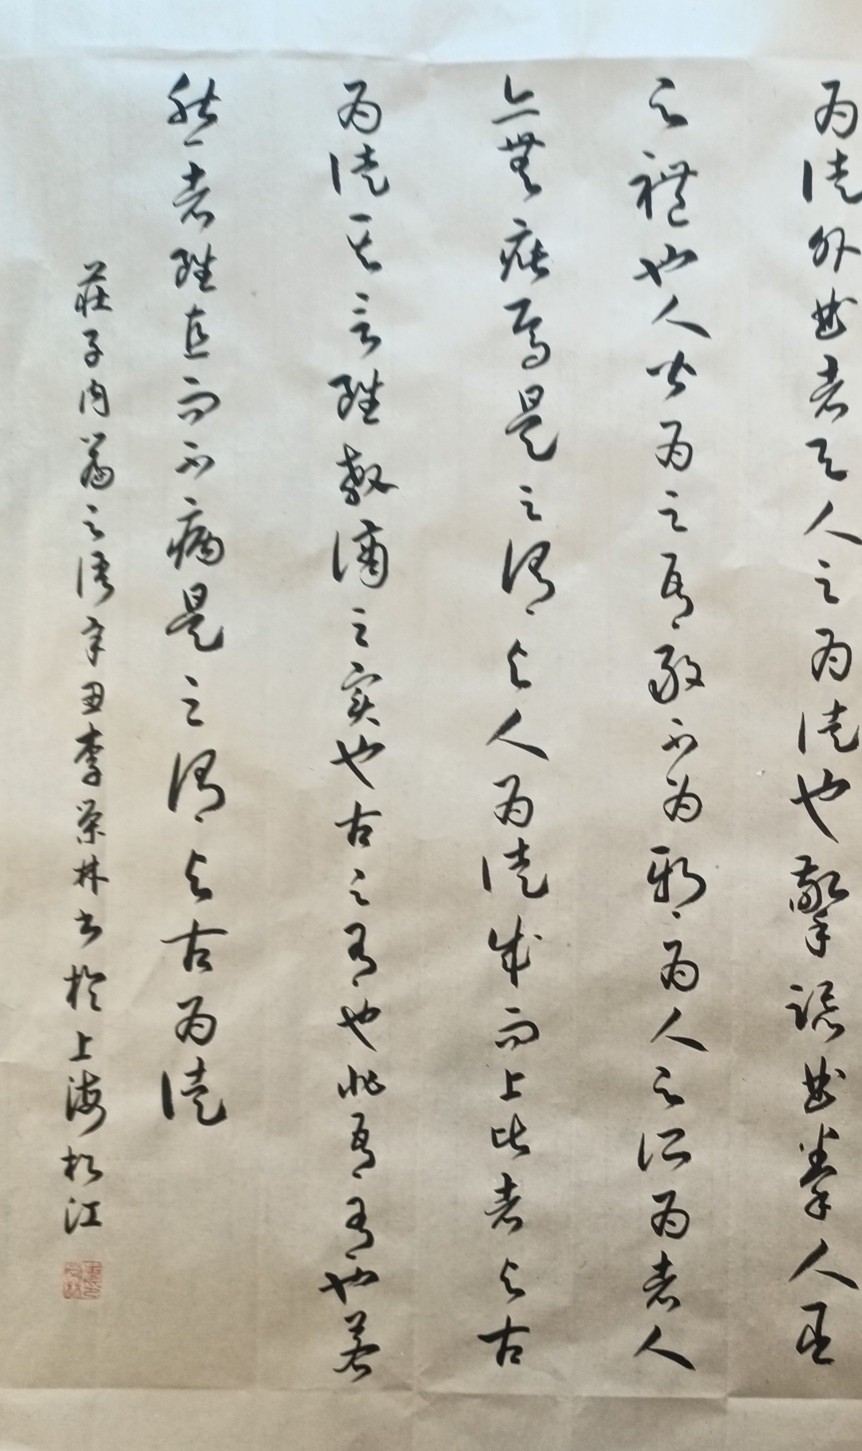 为徒外曲者与人之为徒也擎跽曲拳人臣
之禮也人皆为之吾敢不为邪为人之所为者人
亦無疵焉是之謂与人为徒成而上比者与古
为徒其言雖教謫之实也古之有也非吾有也若
然者雖直而不病是之謂与古为徒
莊子内篇之语辛丑李荣林书於上海松江